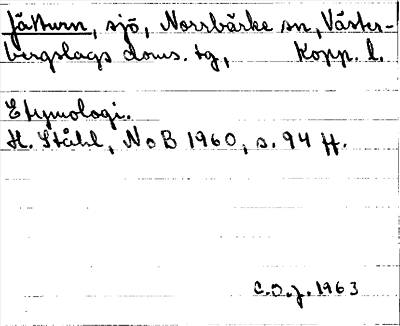 Jätturn, sjö, Norrbärke sn, Väster-
bergslags doms. tg, Kopp. l.
Etymologi.
H. Ståhl, NoB 1960, s. 94 ff.
C.O.J. 1963